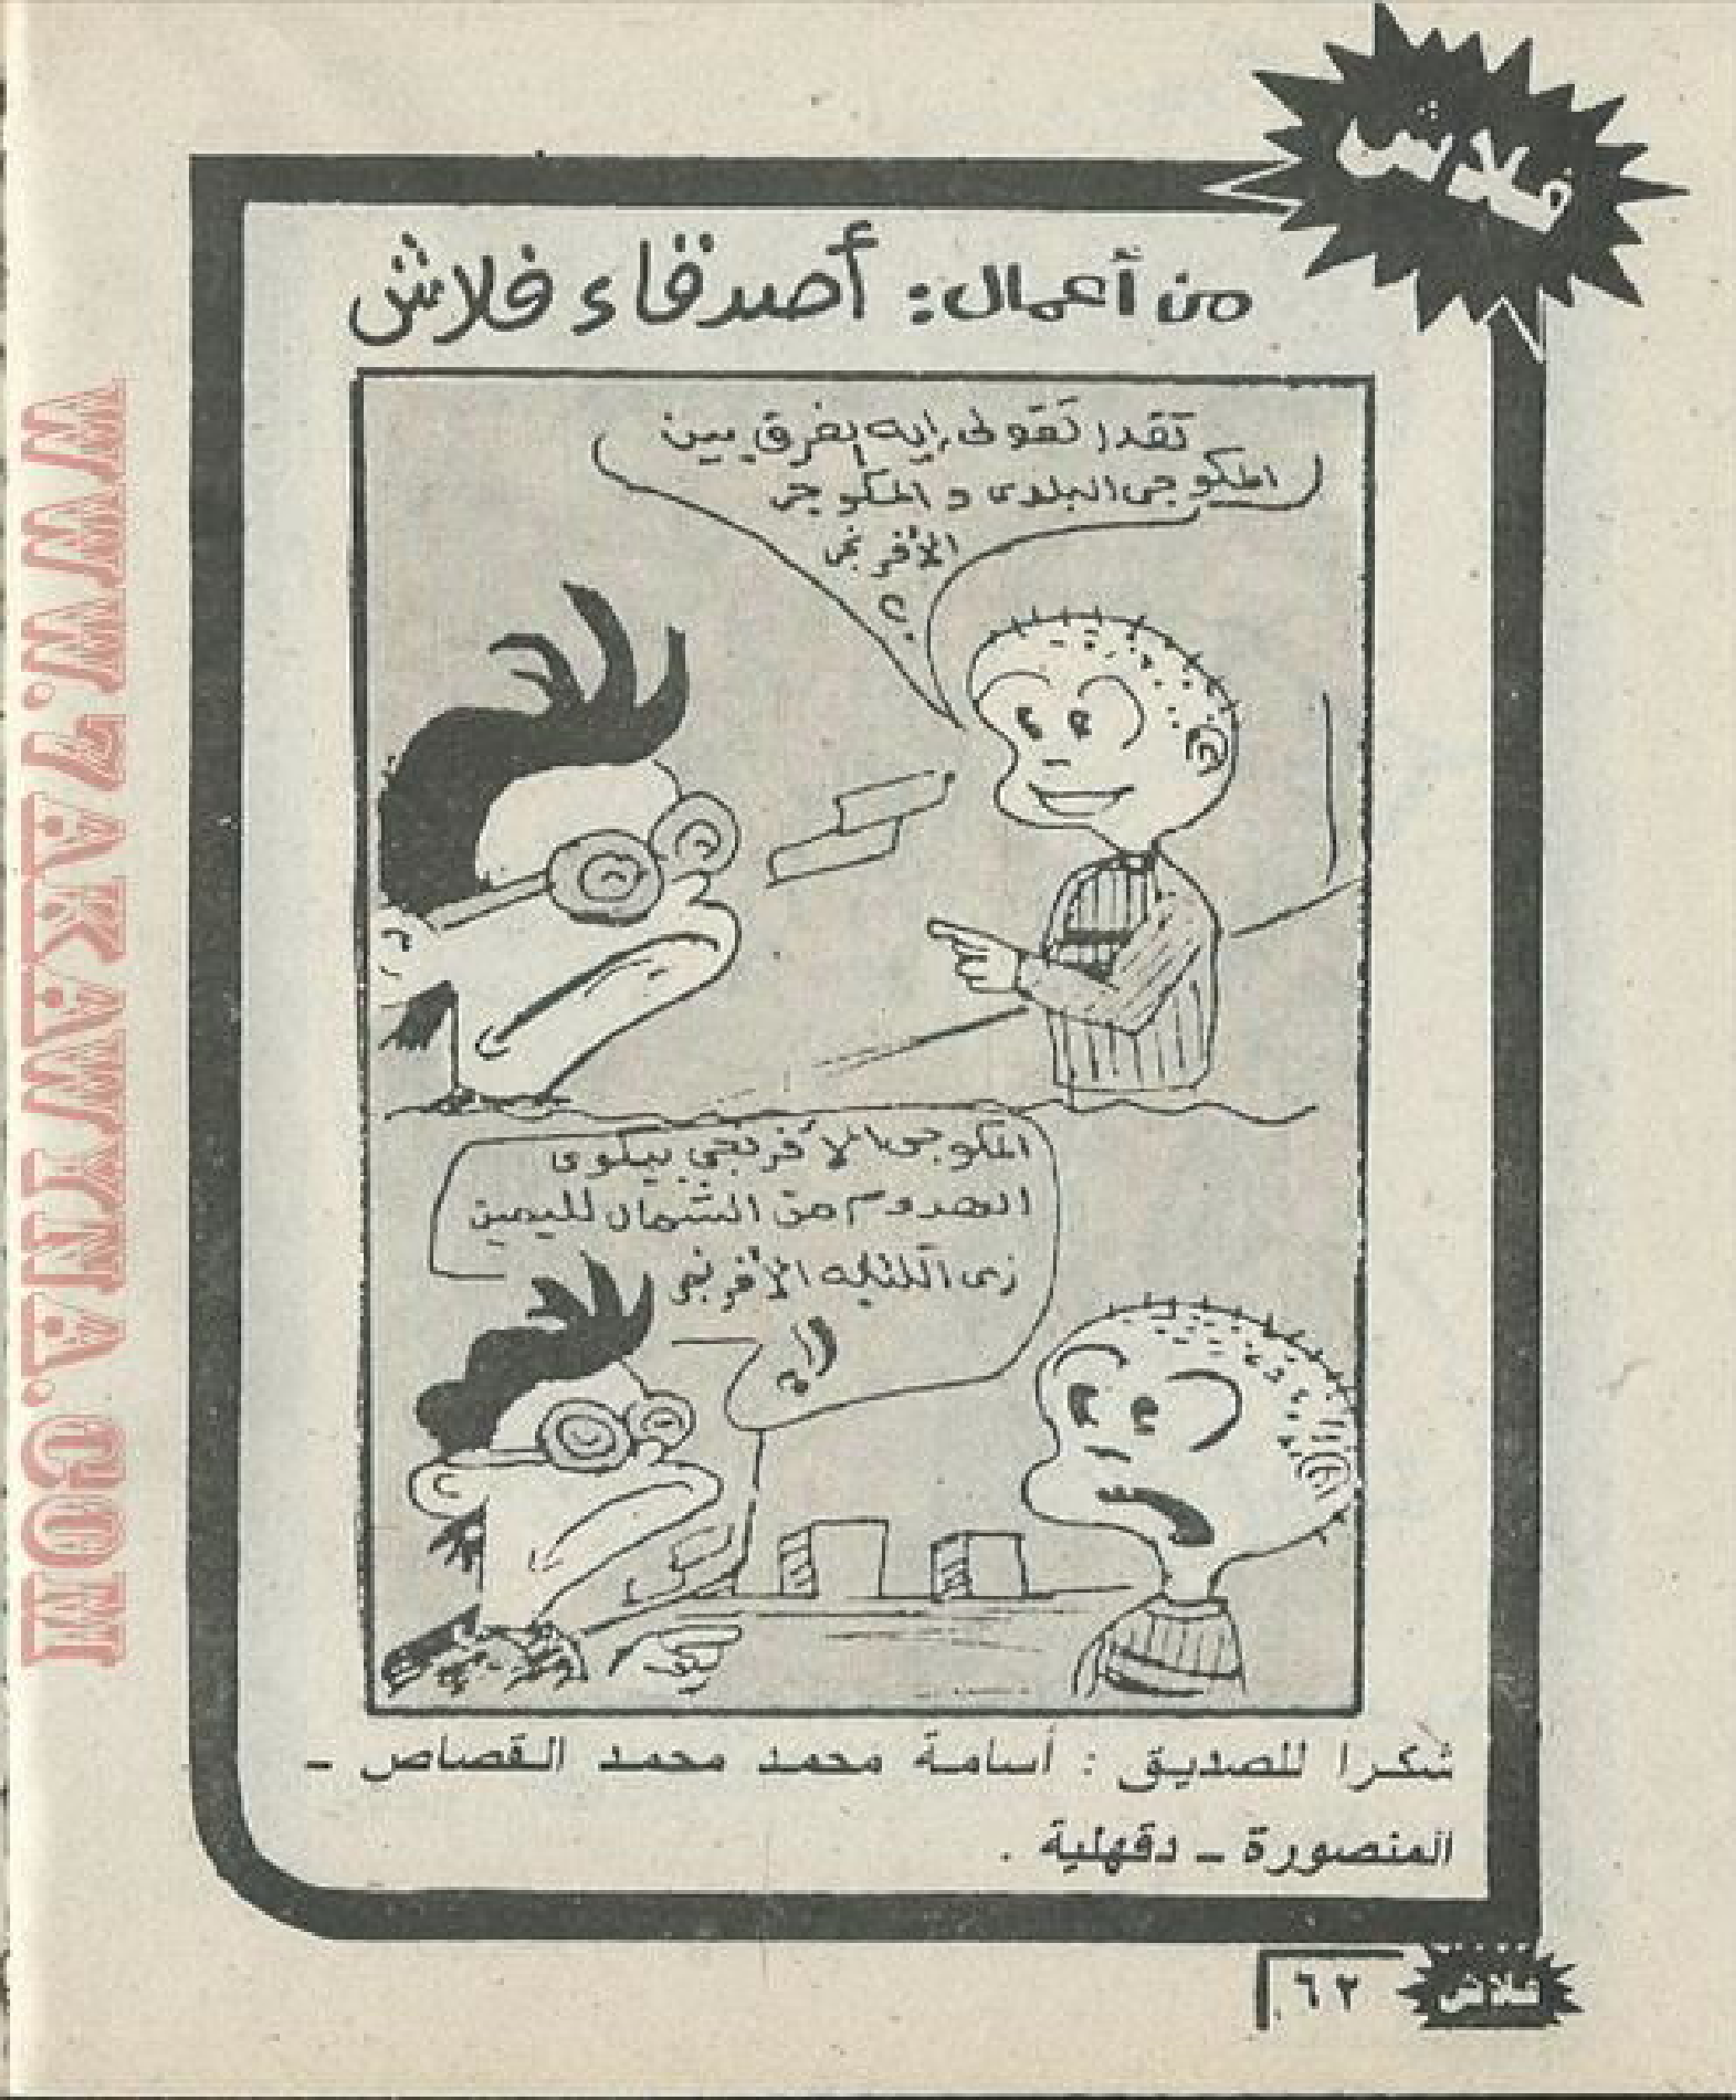 فلاش
من أعمال: أصدقاء فلاش
تقدر تقولى إيه الفرق بين
المكوجى البلدى و المكوجى
الأفرنجى
؟
المكوجى الأفرنجى بيكوى
الهدوم من الشمال لليمين
زى الكتابه الأفرنجى
شكرا للصديق : أسامة محمد محمد القصاص -
المنصورة - دقهلية .
٦٢
فلاش
WWW.7AKAWITNA.COM